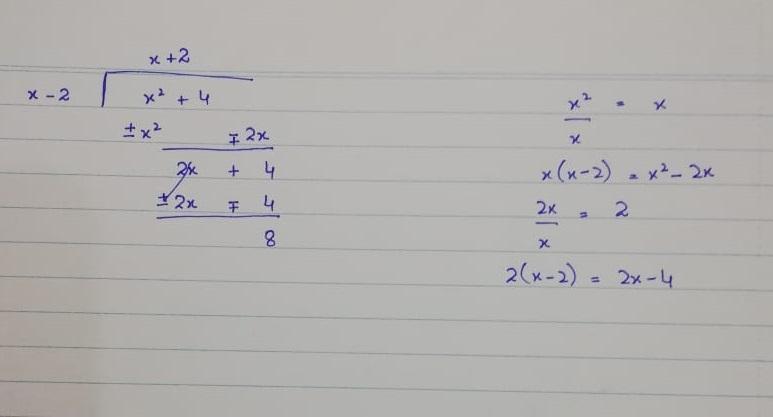 x + 2
x - 2 x² + 4
± x² ∓ 2x
2x + 4
± 2x ∓ 4
8
x² / x = x
x(x-2) = x² - 2x
2x / x = 2
2(x-2) = 2x - 4